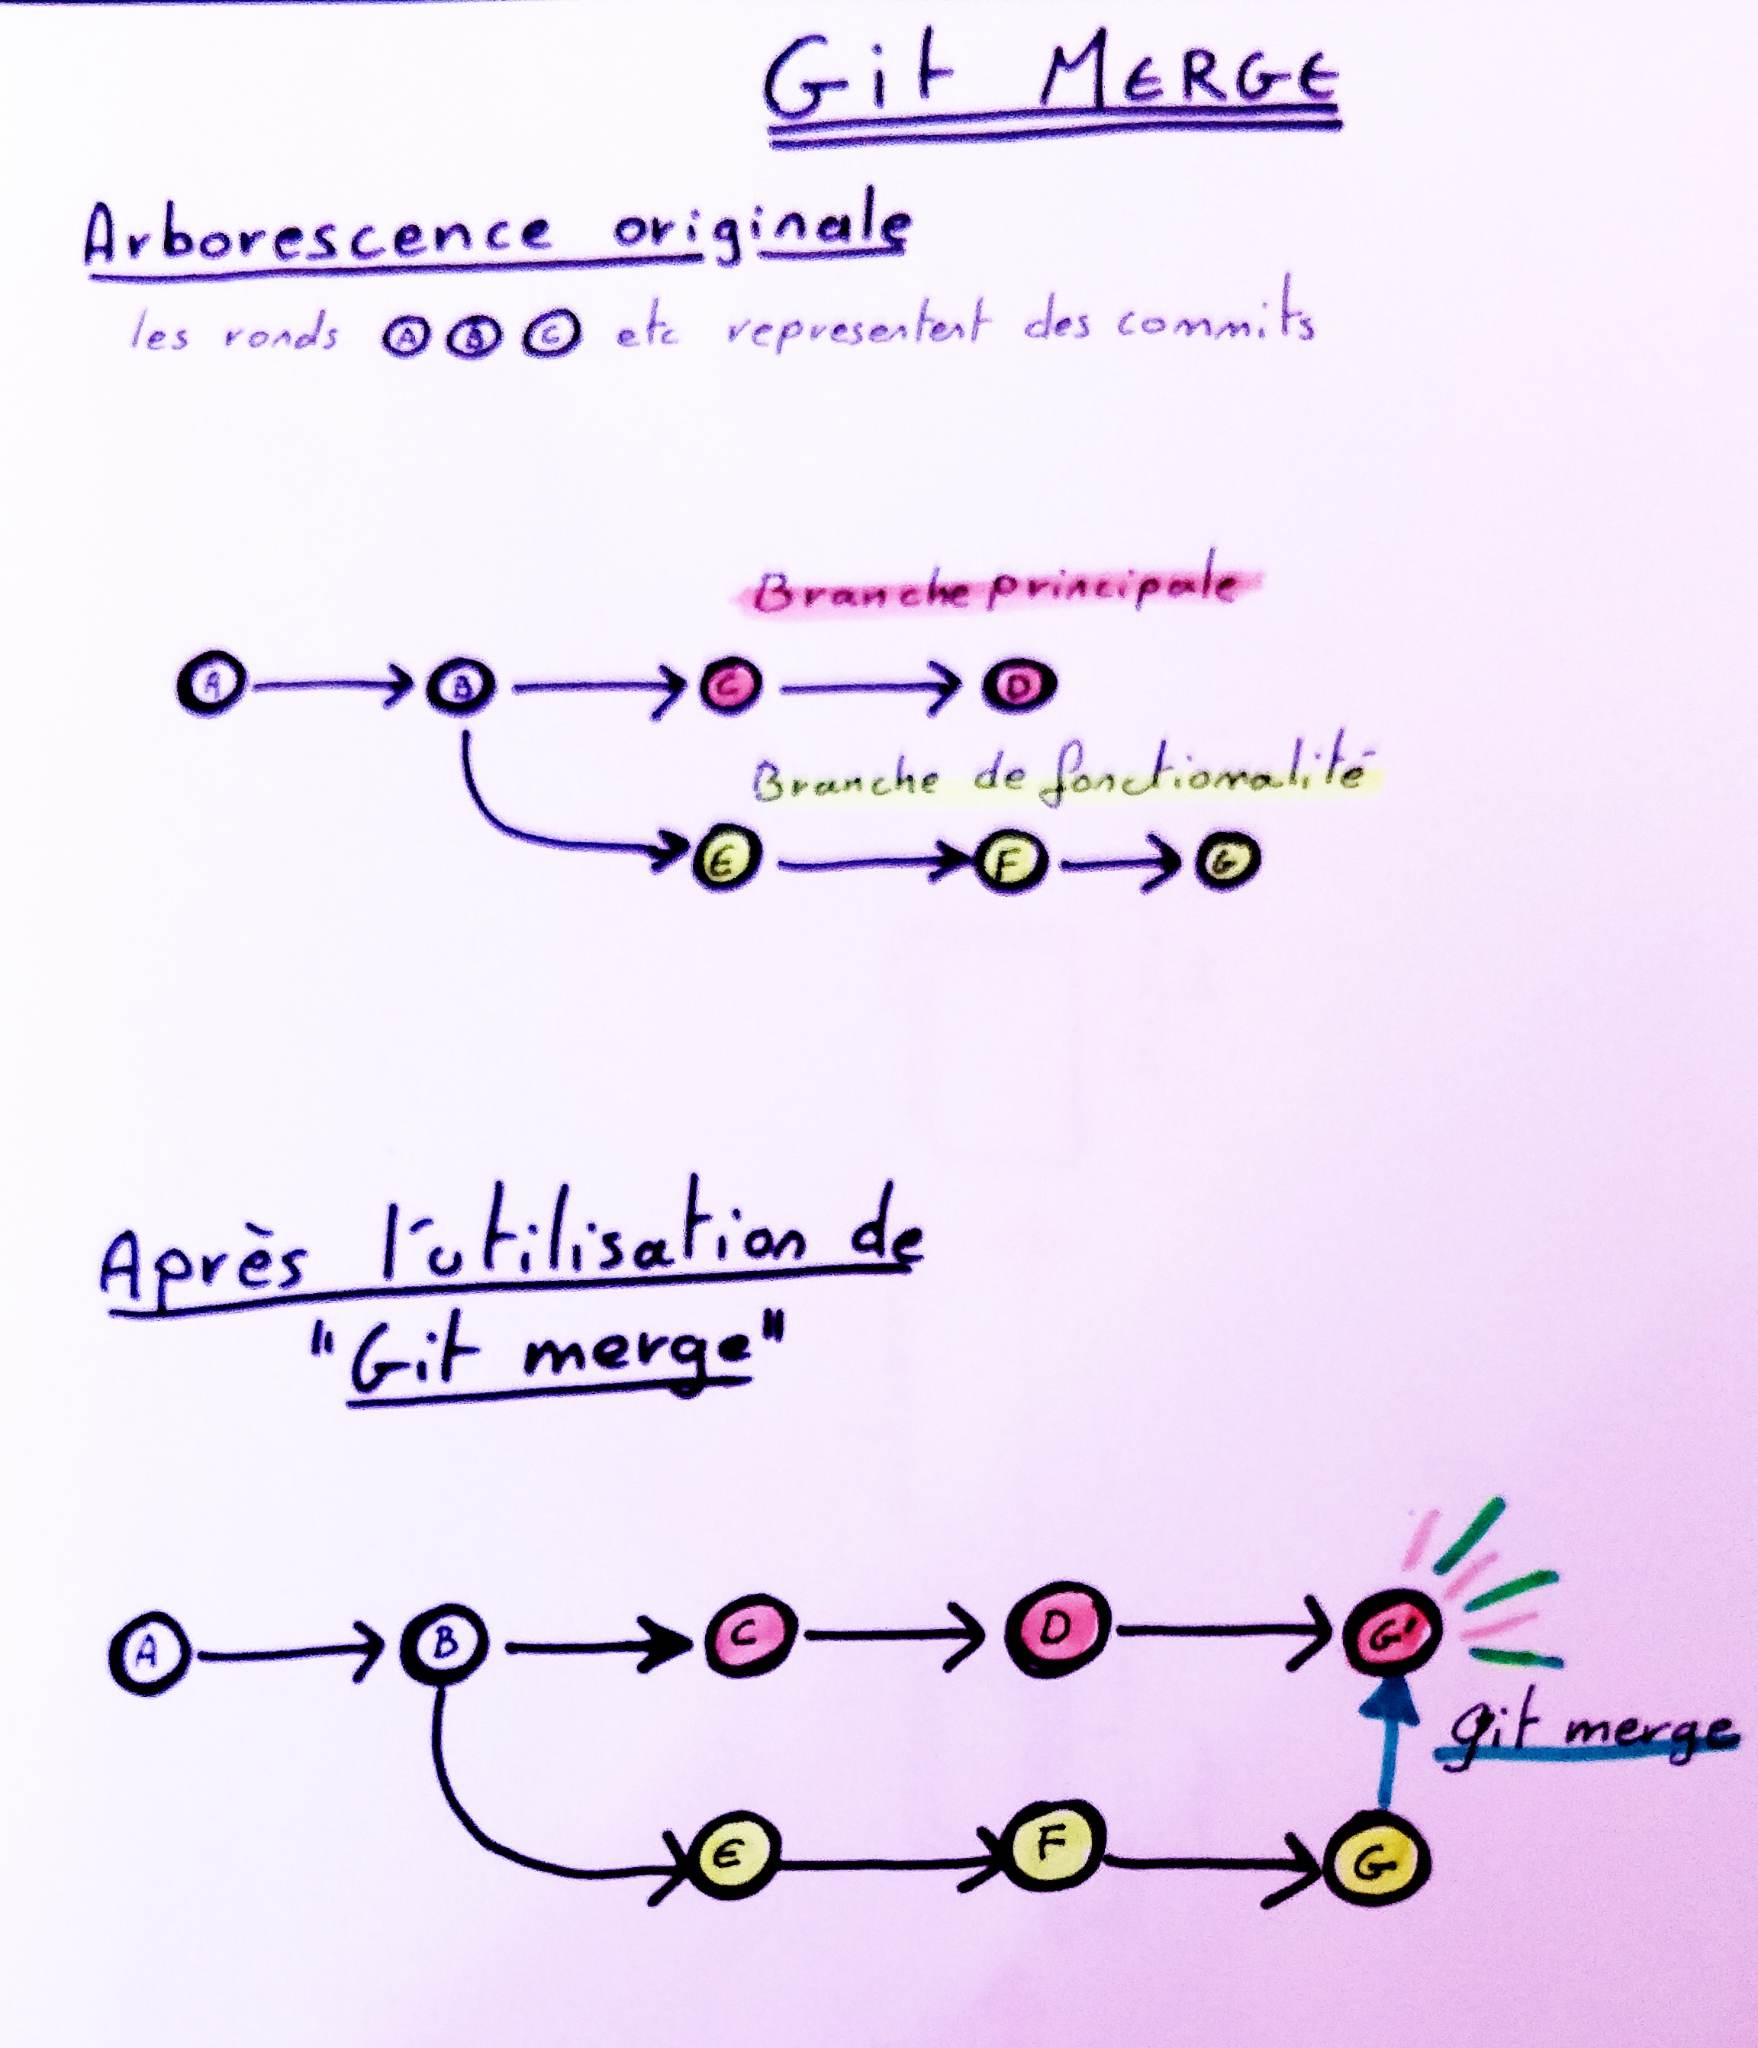 Git MERGE
Arborescence originale
les ronds A B C etc representent des commits
Branche principale
A B C D
Branche de fonctionalité
E F G
Après l'utilisation de
"Git merge"
A B C D G'
git merge
E F G